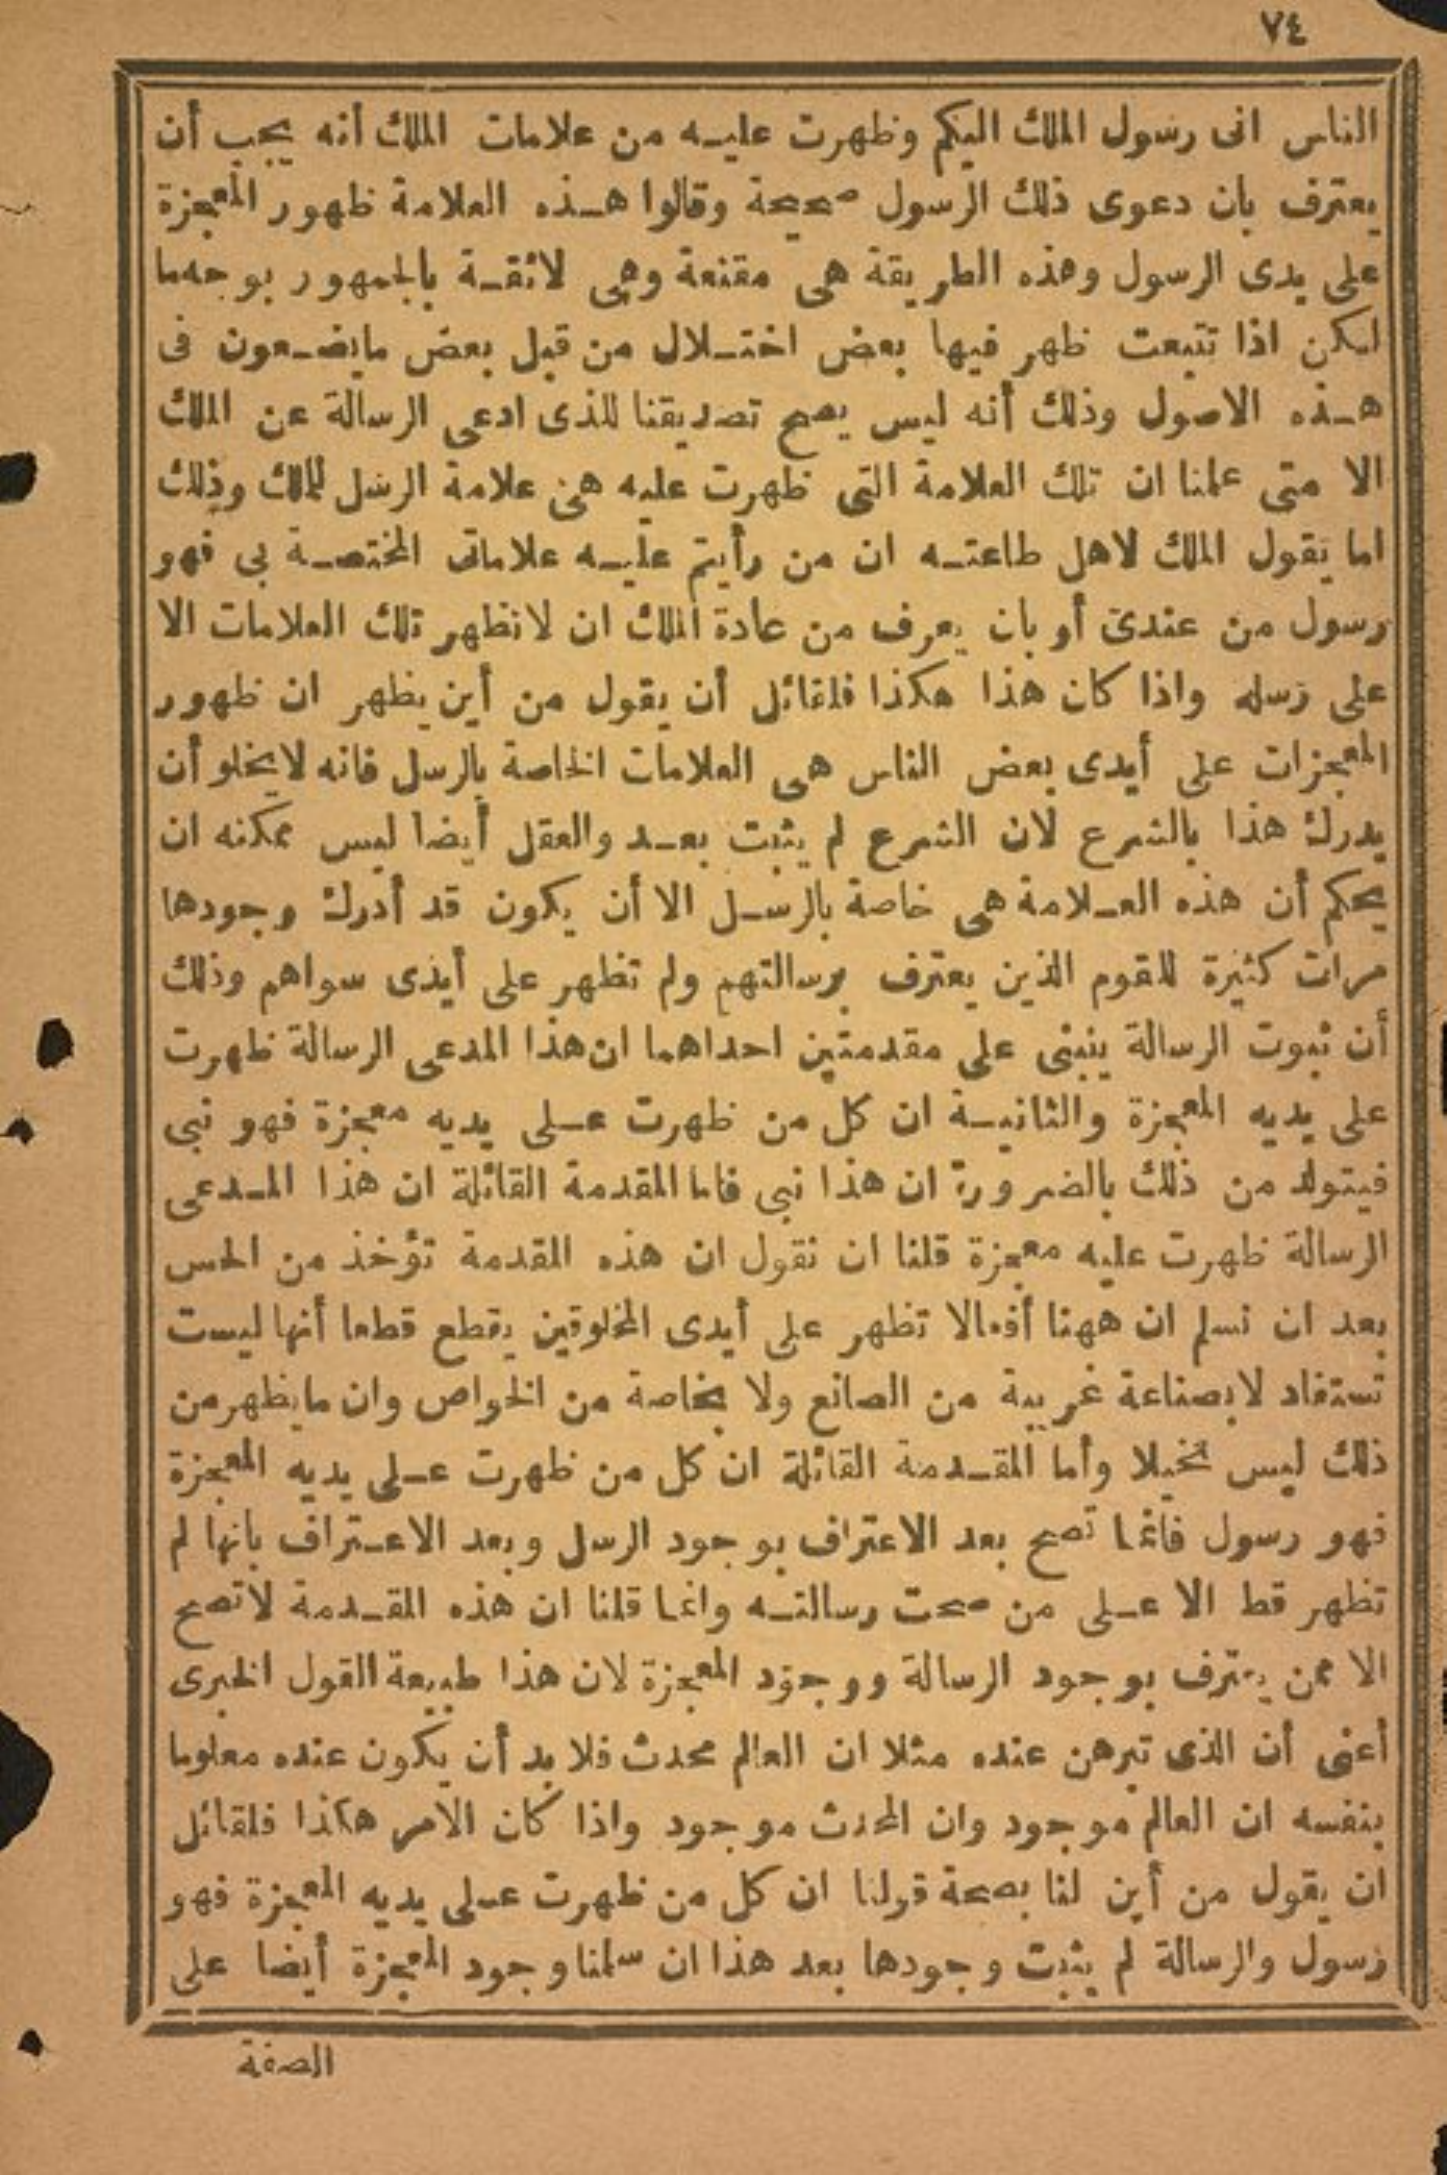 ٧٤
الناس انى رسول الملك اليكم وظهرت عليه من علامات الملك أنه يجب أن
يعترف بان دعوى ذلك الرسول صحيحة وقالوا هذه العلامة ظهور المعجزة
على يدى الرسول وهذه الطريقة هى مقنعة وهى لائقة بالجمهور بوجه ما
لكن اذا تتبعت ظهر فيها بعض اختلال من قبل بعض مايضعون فى
هذه الاصول وذلك أنه ليس يصح تصديقنا للذى ادعى الرسالة عن الملك
الا متى علمنا ان تلك العلامة التى ظهرت عليه هى علامة الرسل للملك وذلك
اما يقول الملك لاهل طاعته ان من رأيتم عليه علاماتى المختصة بى فهو
رسول من عندى أو بان يعرف من عادة الملك ان لاتظهر تلك العلامات الا
على رسله واذا كان هذا هكذا فلقائل أن يقول من أين يظهر ان ظهور
المعجزات على أيدى بعض الناس هى العلامات الخاصة بالرسل فانه لايخلو أن
يدرك هذا بالشرع لان الشرع لم يثبت بعد والعقل أيضا ليس يمكنه ان
يحكم أن هذه العلامة هى خاصة بالرسل الا أن يكون قد أدرك وجودها
مرات كثيرة للقوم الذين يعترف برسالتهم ولم تظهر على أيدى سواهم وذلك
أن ثبوت الرسالة ينبنى على مقدمتين احداهما ان هذا المدعى الرسالة ظهرت
على يديه المعجزة والثانية ان كل من ظهرت على يديه معجزة فهو نبى
فيتولد من ذلك بالضرورة ان هذا نبى فاما المقدمة القائلة ان هذا المدعى
الرسالة ظهرت عليه معجزة قلنا ان نقول ان هذه المقدمة تؤخذ من الحس
بعد ان نسلم ان ههنا أفعالا تظهر على أيدى المخلوقين يقطع قطعا أنها ليست
تستفاد لابصناعة غريبة من الصانع ولا بخاصة من الخواص وان مايظهر من
ذلك ليس تخيلا وأما المقدمة القائلة ان كل من ظهرت على يديه المعجزة
فهو رسول فانما تصح بعد الاعتراف بوجود الرسل وبعد الاعتراف بانها لم
تظهر قط الا على من صحت رسالته وانما قلنا ان هذه المقدمة لاتصح
الا ممن يعترف بوجود الرسالة ووجود المعجزة لان هذا طبيعة القول الخبرى
أعنى أن الذى تبرهن عنده مثلا ان العالم محدث فلا بد أن يكون عنده معلوما
بنفسه ان العالم موجود وان المحدث موجود واذا كان الامر هكذا فلقائل
ان يقول من أين لنا بصحة قولنا ان كل من ظهرت على يديه المعجزة فهو
رسول والرسالة لم يثبت وجودها بعد هذا ان سلمنا وجود المعجزة أيضا على
الصفة